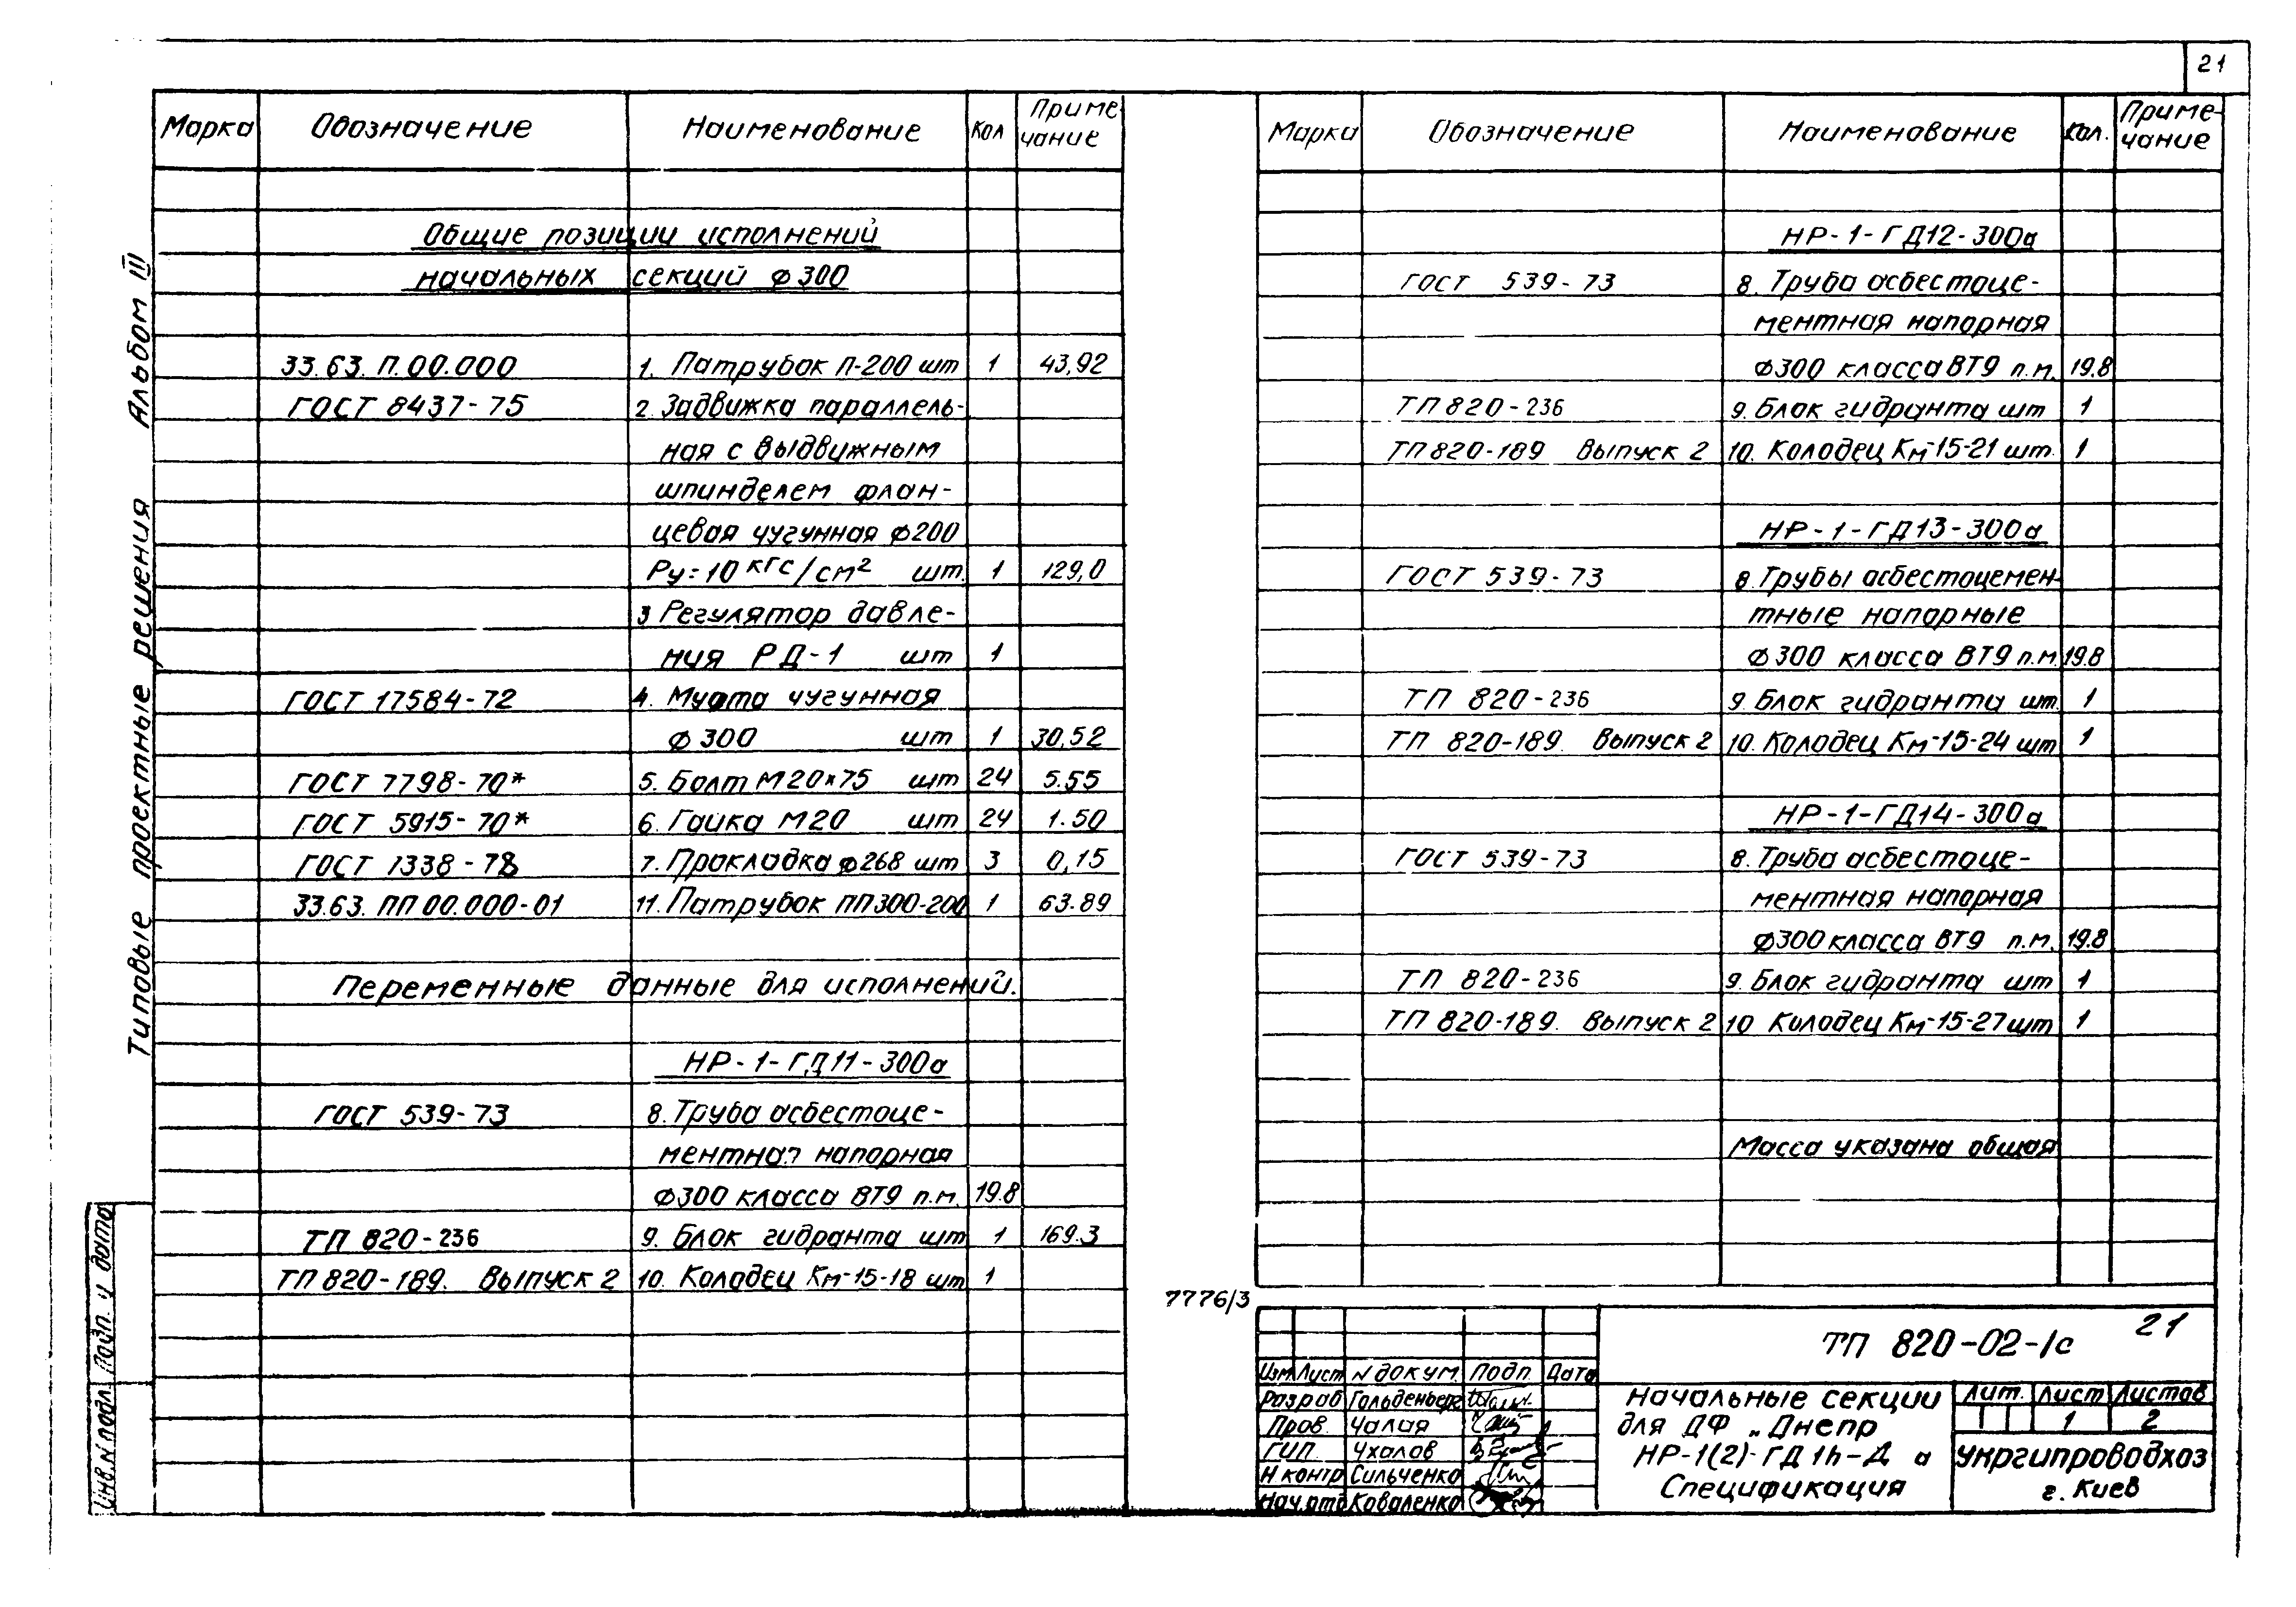 21
Типовые проектные решения Альбом III
Марка Обозначение Наименование Кол Приме
чание
Общие позиции исполнений
начальных секций ф300
33.63. П.00.000 1. Патрубок П-200 шт 1 43,92
ГОСТ 8437-75 2. Задвижка параллель-
ная с выдвижным
шпинделем флан-
цевая чугунная ф200
Ру=10 кгс/см² шт. 1 129,0
3 Регулятор давле-
ния РД-1 шт 1
ГОСТ 17584-72 4. Муфта чугунная
ф300 шт 1 30,52
ГОСТ 7798-70* 5. Болт М20×75 шт 24 5.55
ГОСТ 5915-70* 6. Гайка М20 шт 24 1.50
ГОСТ 1338-78 7. Прокладка ф268 шт 3 0,15
33.63. ПП 00.000-01 11. Патрубок ПП300-200 1 63.89
Переменные данные для исполнений.
НР-1-ГД11-300а
ГОСТ 539-73 8. Труба асбестоце-
ментная напорная
ф300 класса ВТ9 п.м. 19.8
ТП 820-236 9. Блок гидранта шт 1 169.3
ТП 820-189. Выпуск 2 10. Колодец Км-15-18 шт 1
Марка Обозначение Наименование Кол. Приме-
чание
НР-1-ГД12-300а
ГОСТ 539-73 8. Труба асбестоце-
ментная напорная
ф300 класса ВТ9 п.м. 19.8
ТП 820-236 9. Блок гидранта шт 1
ТП 820-189 Выпуск 2 10. Колодец Км-15-21 шт. 1
НР-1-ГД13-300а
ГОСТ 539-73 8. Трубы асбестоцемен-
тные напорные
ф300 класса ВТ9 п.м. 19.8
ТП 820-236 9. Блок гидранта шт. 1
ТП 820-189. Выпуск 2 10. Колодец Км-15-24 шт 1
НР-1-ГД14-300а
ГОСТ 539-73 8. Труба асбестоце-
ментная напорная
ф300 класса ВТ9 п.м. 19.8
ТП 820-236 9. Блок гидранта шт 1
ТП 820-189. Выпуск 2 10 Колодец Км-15-27 шт 1
Масса указана общая
7776/3
Инв.N подл. Подп. и дата
ТП 820-02-1с 21
Изм. Лист N докум. Подп Дата
Разраб Гольденберг
Пров. Чалая
ГИП Ухалов
Н контр Сильченко
Нач.отд Коваленко
Начальные секции
для ДФ „Днепр
НР-1(2)-ГД1h-Д а
Спецификация
Лит. Лист Листов
1 2
Укргипроводхоз
г. Киев